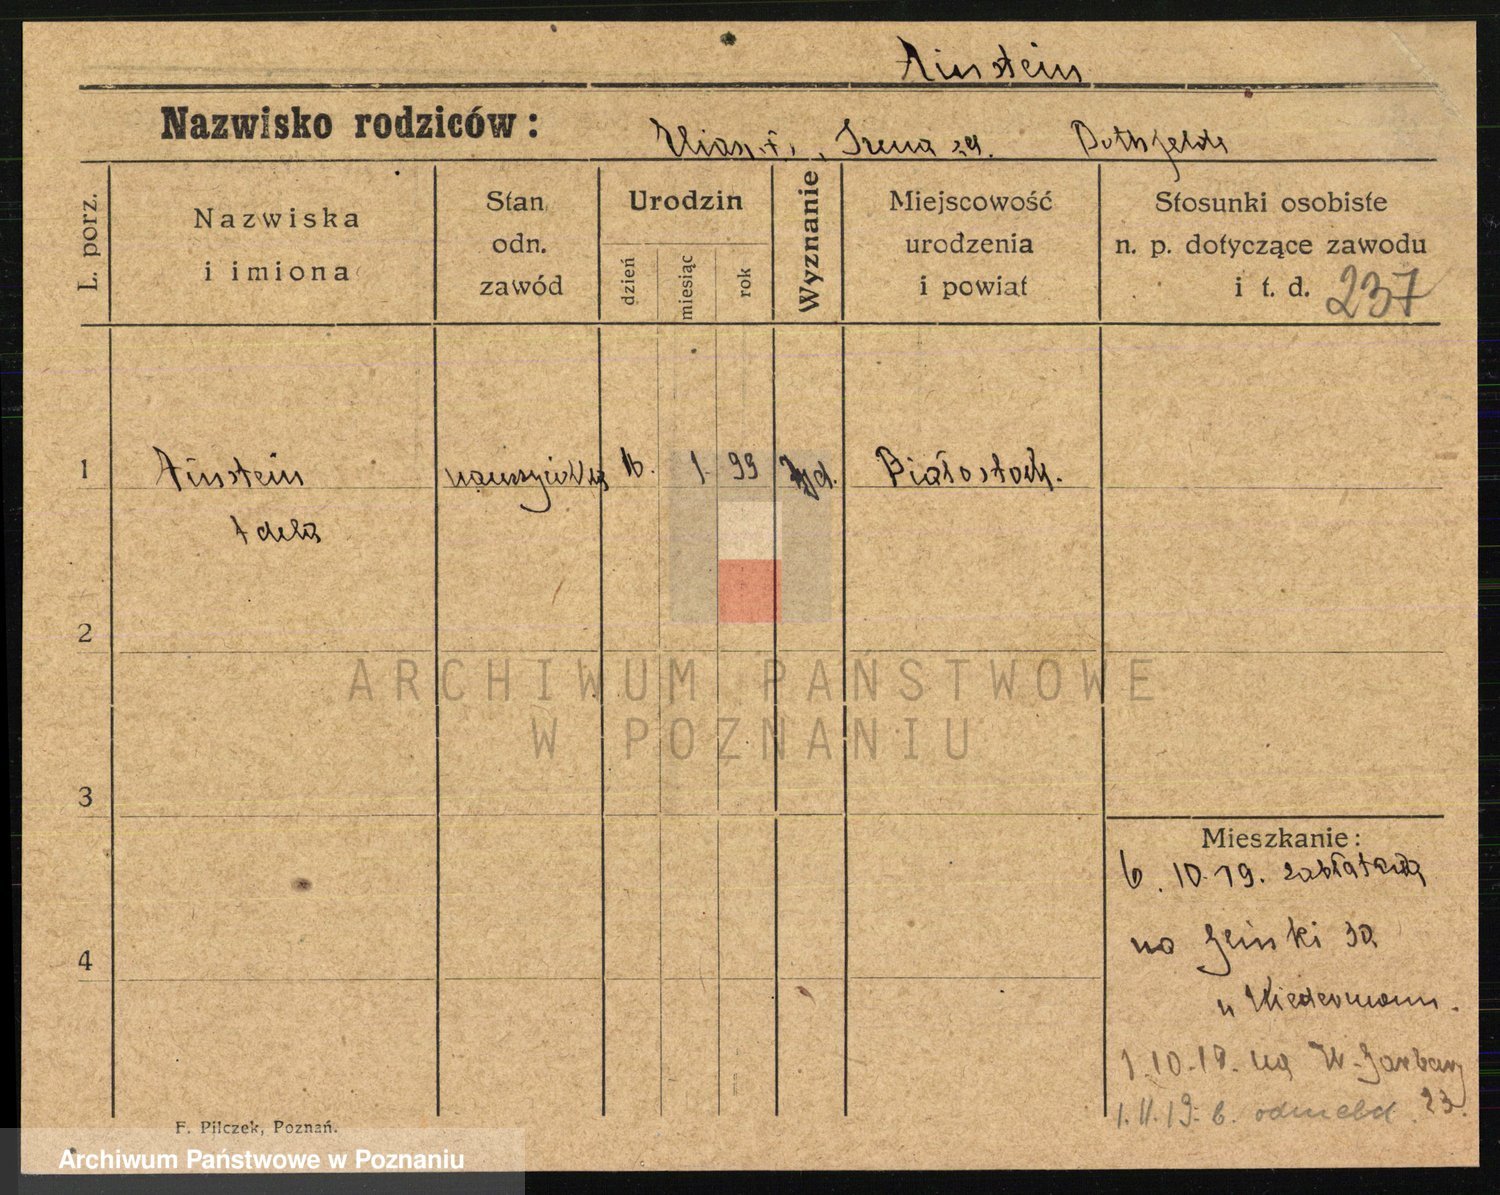 Ainstein
Nazwisko rodziców:
Irena zd.
L. porz.
Nazwiska
i imiona
Stan
odn.
zawód
Urodzin
dzień
miesiąc
rok
Wyznanie
Miejscowość
urodzenia
i powiat
Stosunki osobiste
n. p. dotyczące zawodu
i t. d. 237
1 Ainstein nauczycielka 16. 1. 99 żyd. Białostock.
Adela
2
3
4
ARCHIWUM PAŃSTWOWE
W POZNANIU
Mieszkanie:
6. 10. 19.
na
u Wiedermann.
1.10.19. na W-Garbary
23.
1.11.19. b. odmeld.
F. Pilczek, Poznań.
Archiwum Państwowe w Poznaniu